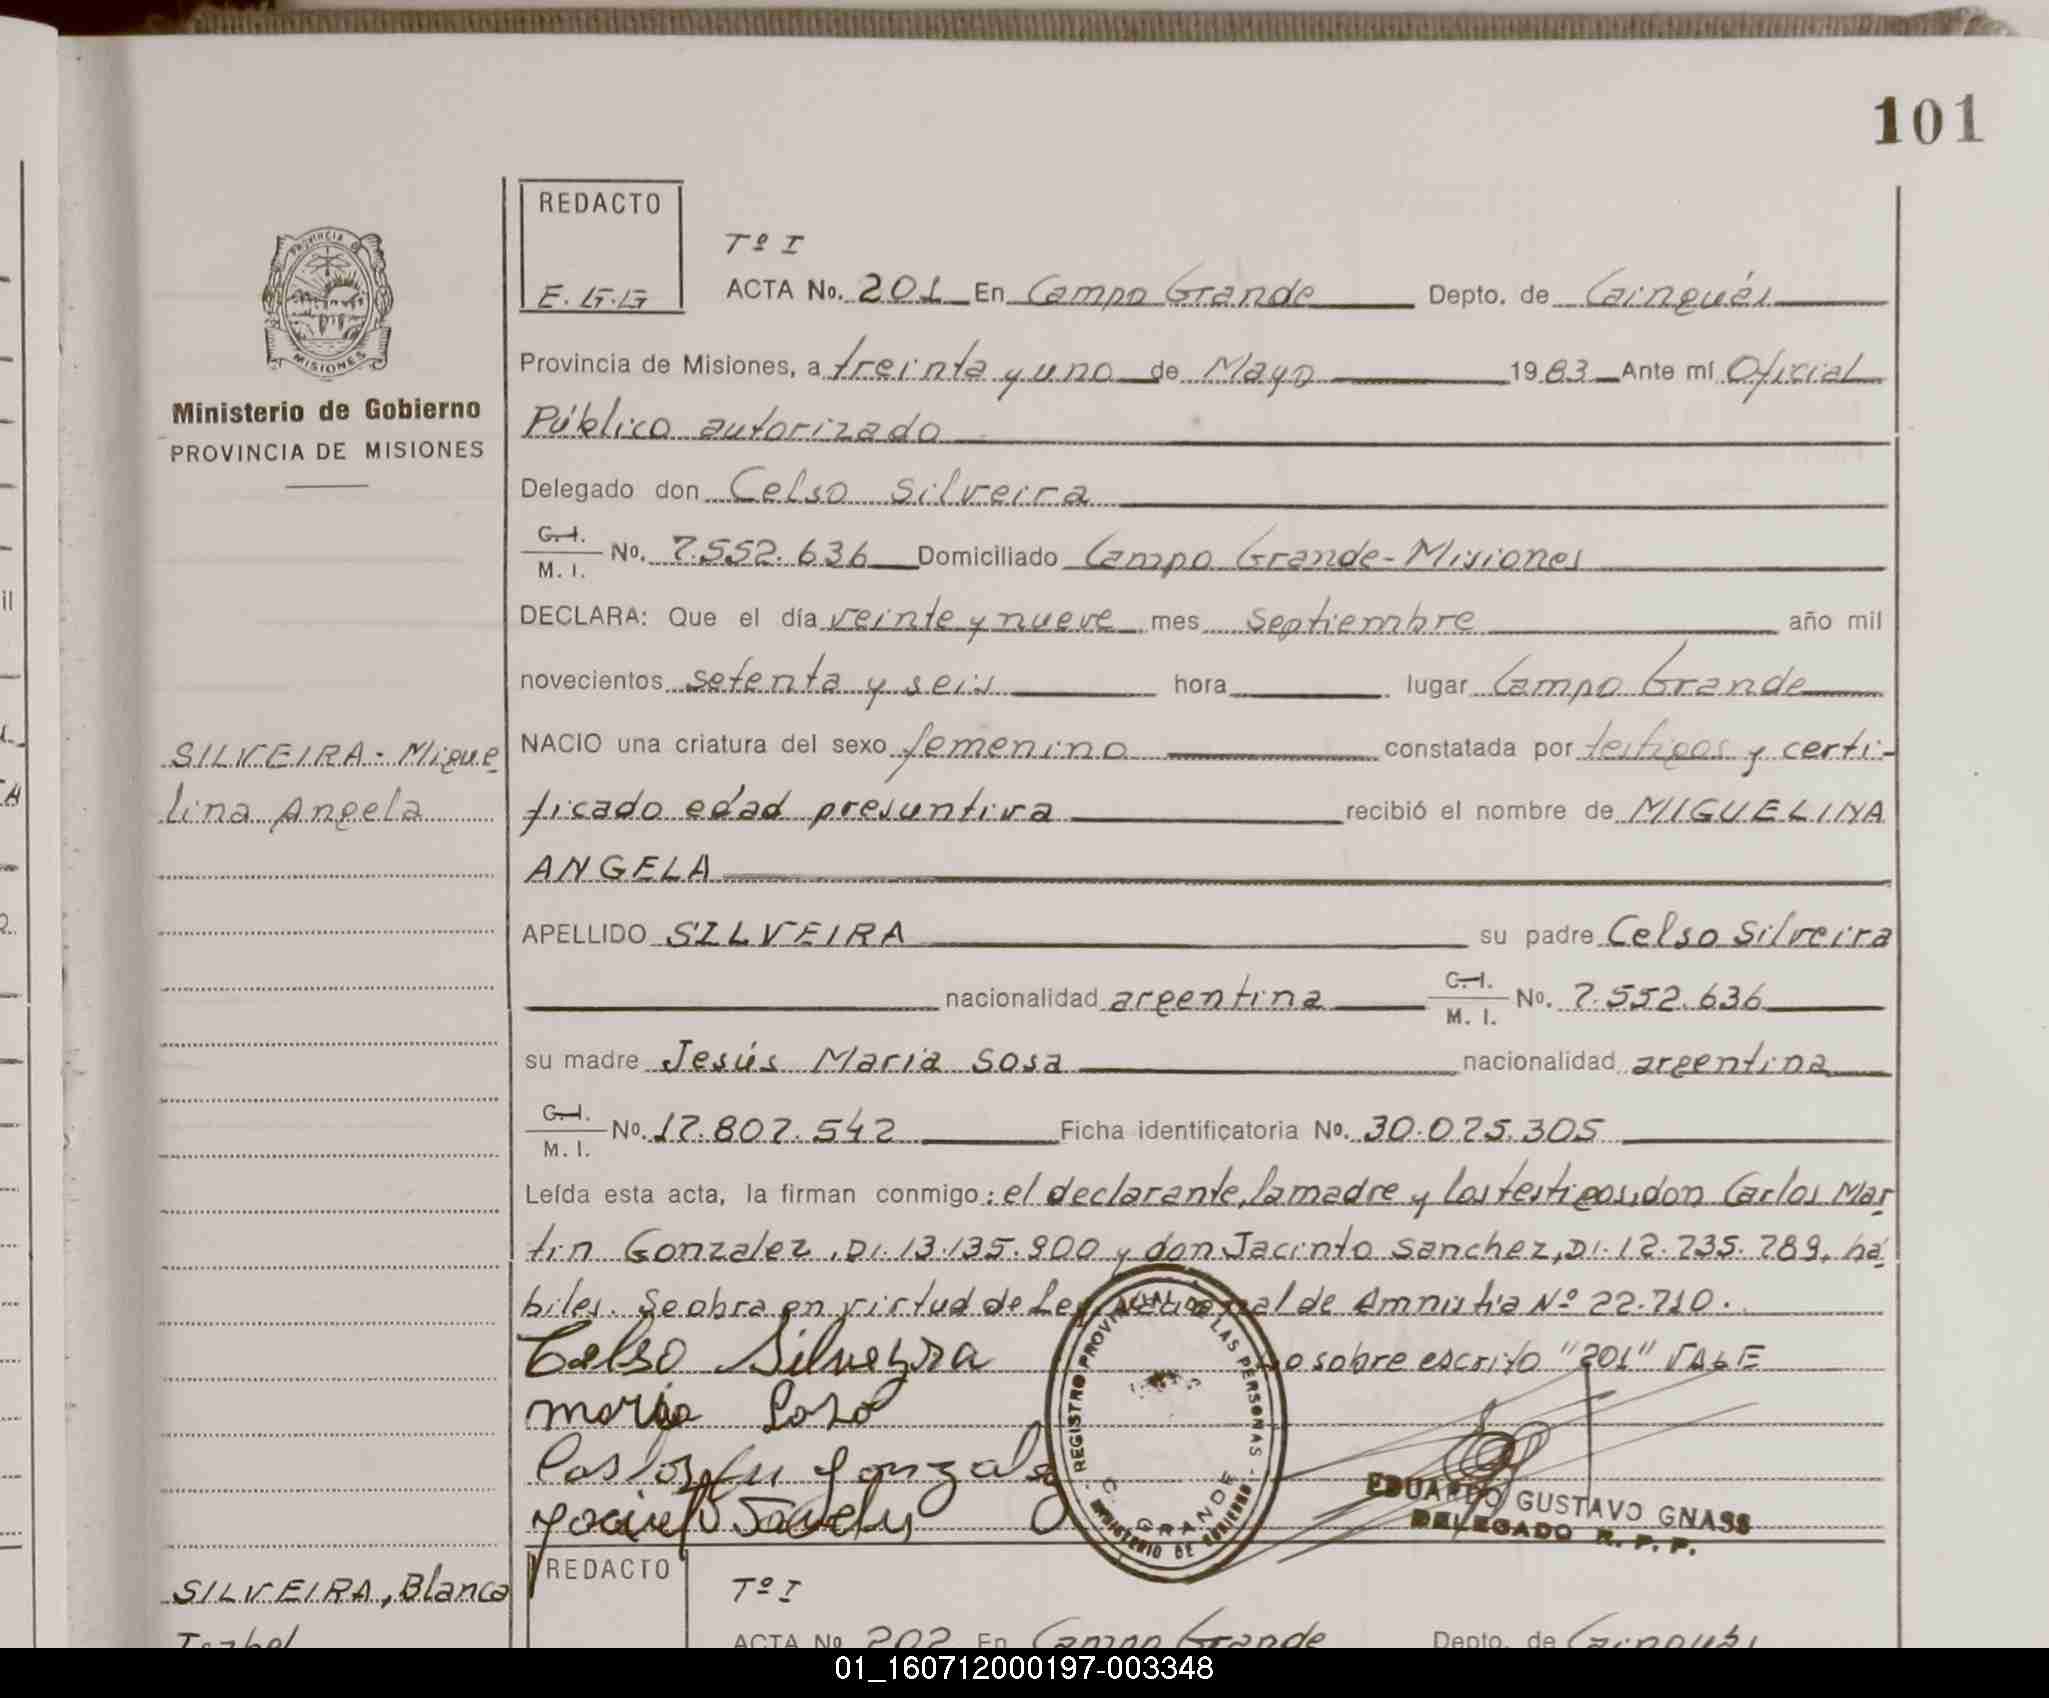 101
REDACTO
E. G. G
Tº I
ACTA No. 201 En Campo Grande Depto. de Cainguás
PROVINCIA DE
MISIONES
Ministerio de Gobierno
PROVINCIA DE MISIONES
Provincia de Misiones, a treinta y uno de Mayo 1983 Ante mí Oficial
Público autorizado
Delegado don Celso Silveira
C. I.
M. I. No. 7.552.636 Domiciliado Campo Grande - Misiones
DECLARA: Que el día veinte y nueve mes Septiembre año mil
novecientos setenta y seis hora lugar Campo Grande
SILVEIRA - Migue
lina Angela
NACIO una criatura del sexo femenino constatada por testigos y certi-
ficado edad presuntiva recibió el nombre de MIGUELINA
ANGELA
APELLIDO SILVEIRA su padre Celso Silveira
nacionalidad argentina C. I. M. I. No. 7.552.636
su madre Jesús Maria Sosa nacionalidad argentina
C. I.
M. I. No. 17.807.542 Ficha identificatoria No. 30.075.305
Leída esta acta, la firman conmigo: el declarante, la madre y los testigos, don Carlos Mar
tin Gonzalez, DI. 13.135.900 y don Jacinto Sanchez, DI. 12.735.789, há
biles. Se obra en virtud de Ley Nacional de Amnistia Nº 22.710.
Celso Silveyra
sobre escrito "201" VALE
maria Soso
REGISTRO PROVINCIAL DE LAS PERSONAS
C. GRANDE
MINISTERIO DE GOBIERNO
EDUARDO GUSTAVO GNASS
DELEGADO R. P. P.
SILVEIRA, Blanca
Isabel
REDACTO
Tº I
ACTA No 202 En Campo Grande Depto. de Cainguás
01_160712000197-003348